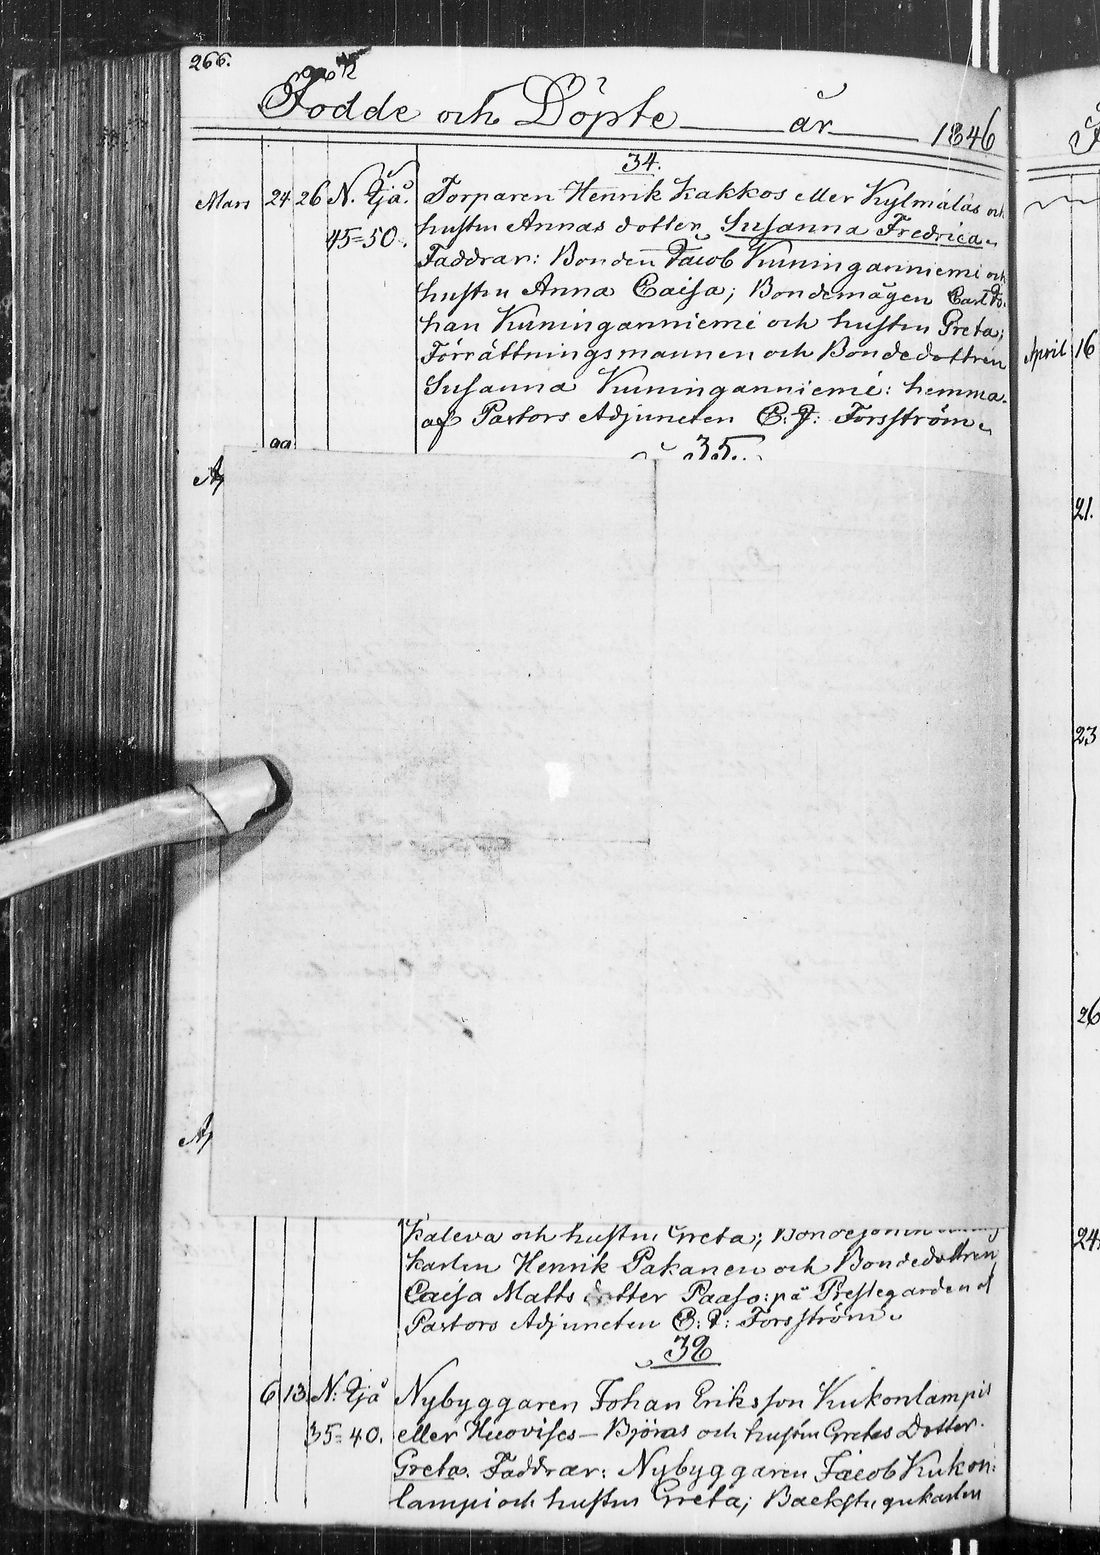 266.
Födde och Döpte år 1846
34.
Mars 24 26 N. Tjä. Torparen Henrik Kakkos eller Kylmälas och
45=50. hustru Annas dotter, Susanna Fredrica.
Faddrar: Bonden Jacob Kuninganniemi och
hustru Anna Caisa; Bondemågen Carl Jo-
han Kuninganniemi och hustru Greta;
Förrättningsmannen och Bondedottren
Susanna Kuninganniemi: hemma.
af Pastors Adjuncten C: J: Forsström.
35.
Ap
Ap
Kaleva och hustru Greta;
karlen Henrik Pakanen och Bondedottren
Caisa Matts dotter Paaso: på Prestegården af
Pastors Adjuncten C: J: Forsström.
38
6 13 N: Tjä Nybyggaren Johan Eriksson Kukonlampis
35=40. eller Huovises-Björas och hustru Gretas Dotter
Greta. Faddrar: Nybyggaren Jacob Kukon-
lampi och hustru Greta; Backstugukarlen
April 16
21.
23
26
24